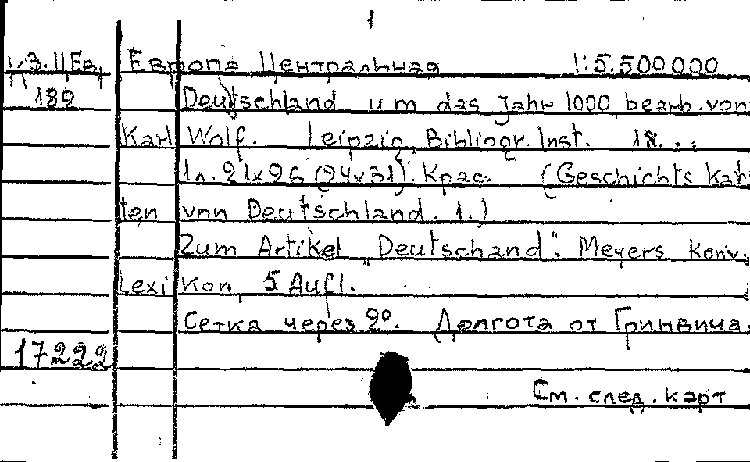 1
Европа Центральная 1:5.500000
189 Deutschland um das Jahr 1000 bearb. von
Karl Wolf. Leipzig, Bibliogr. Inst. 18..
1л. 21x26 (24x31). Крас. (Geschichts Kar-
ten von Deutschland. 1.)
Zum Artikel „Deutschand". Meyers Konv.
Lexikon, 5 Aufl.
Сетка через 2°. Долгота от Гринвича.
17222
См. след. карт